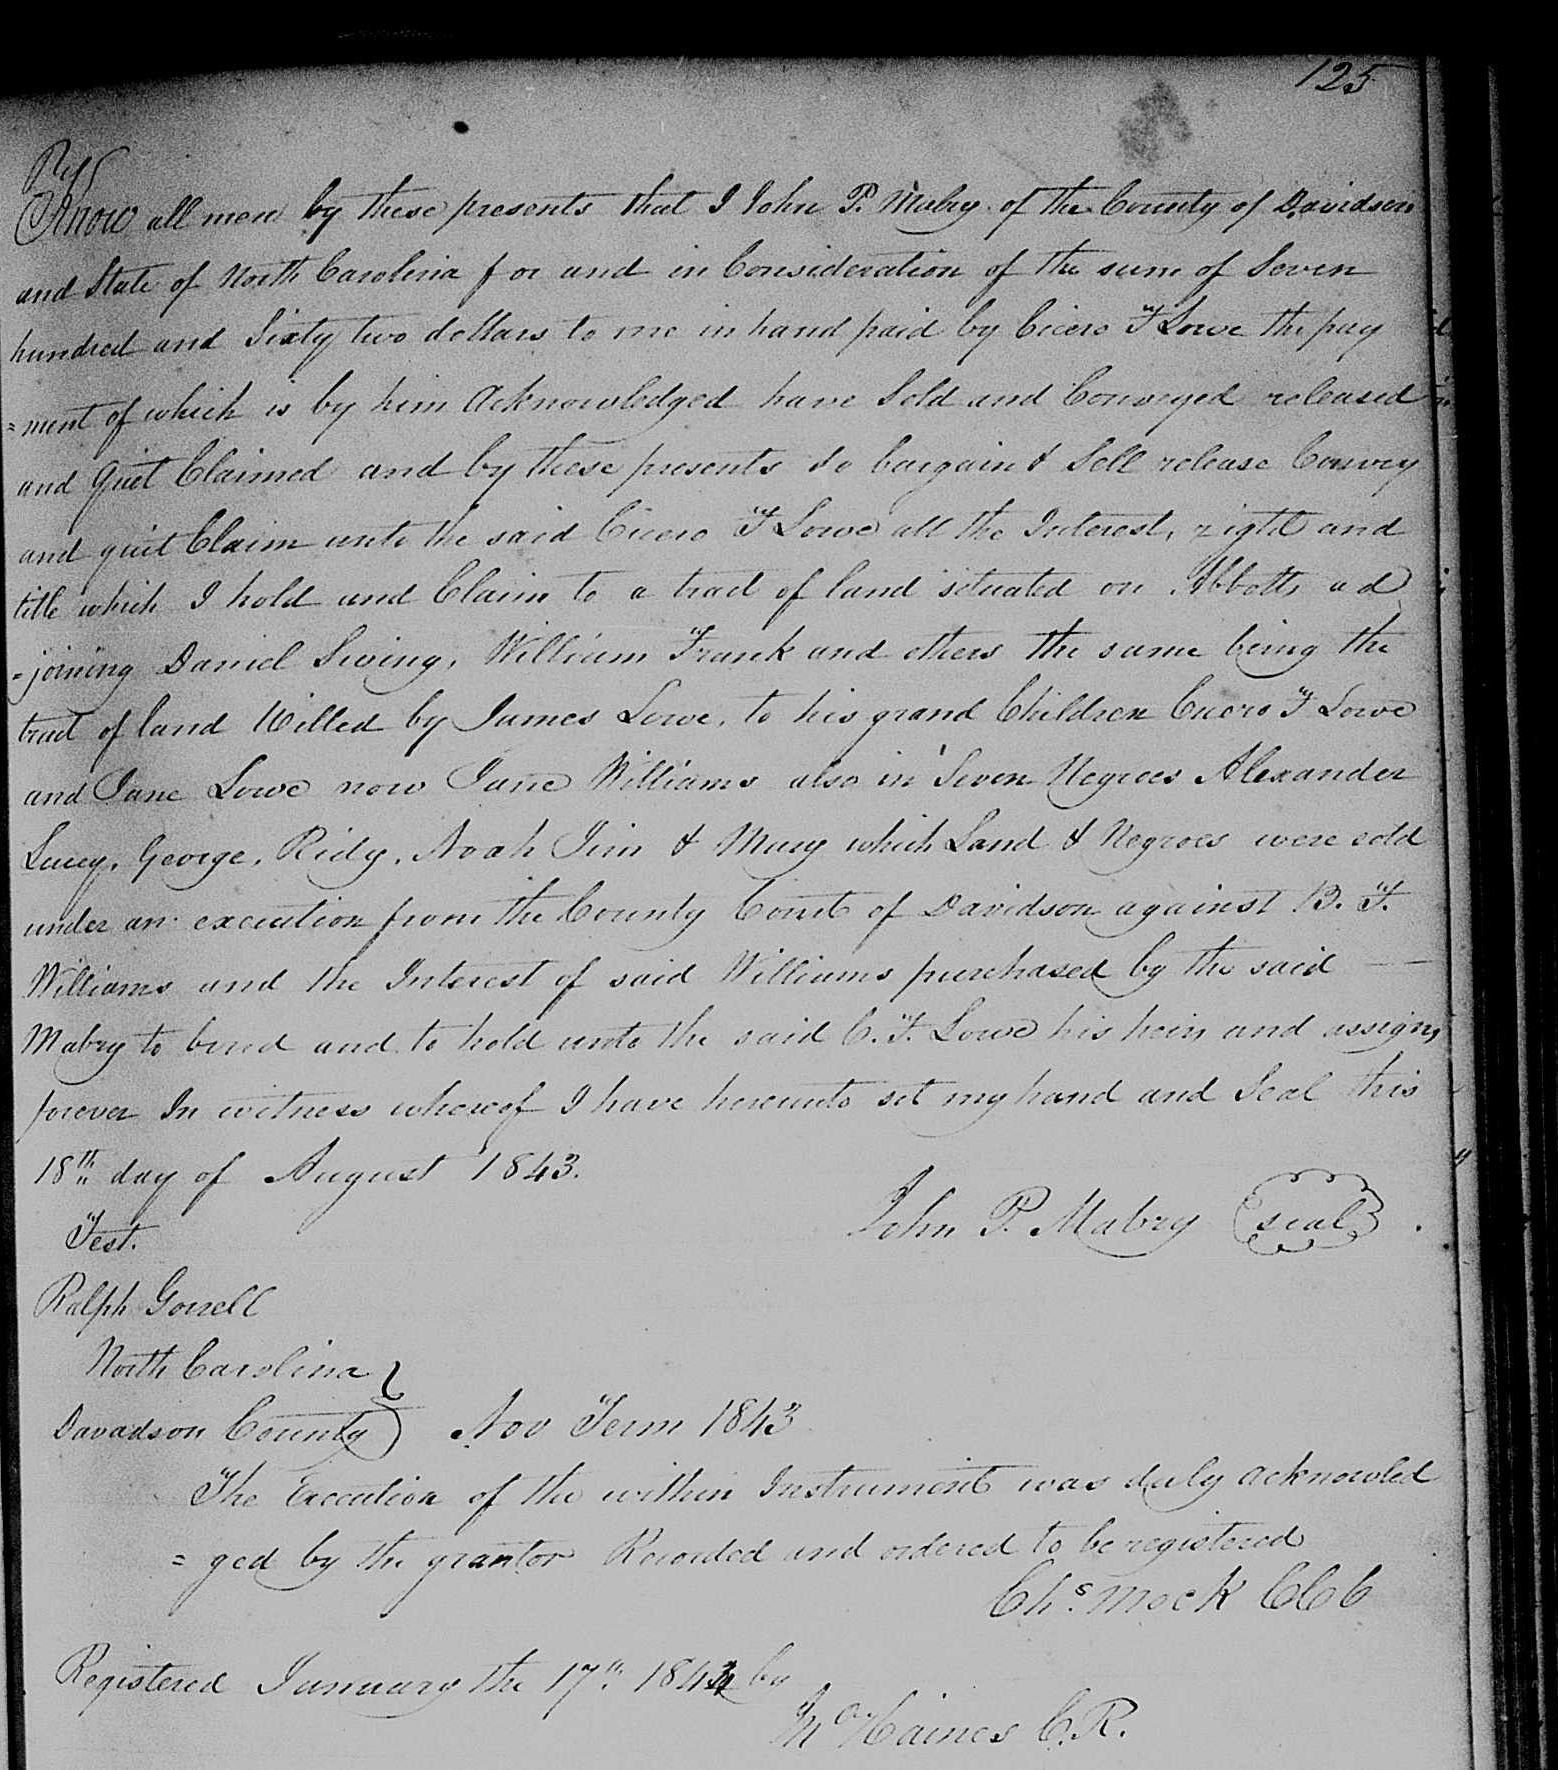 125
Know all men by these presents that I John P. Mabry of the County of Davidson
and State of North Carolina for and in Consideration of the sum of Seven
hundred and Sixty two dollars to me in hand paid by Cicero F Lowe the pay
=ment of which is by him Acknowledged have Sold and Conveyed released
and Quit Claimed and by these presents do bargain & Sell release Convey
and quit Claim unto the said Cicero F Lowe all the Interest, right and
title which I hold and Claim to a tract of land situated on Abbotts ad
=joining Daniel Swing, William Frank and others the same being the
tract of land Willed by James Lowe, to his grand Children Cicero F Lowe
and Jane Lowe now Jane Williams also in Seven Negroes Alexander
Lucy, George, Ridy, Noah Jim & Mary which Land & Negroes were sold
under an execution from the County Court of Davidson against B. F.
Williams and the Interest of said Williams purchased by the said
Mabry to bind and to hold unto the said C. F. Lowe his heirs and assigns
forever In witness whereof I have hereunto set my hand and Seal this
18th day of August 1843.
John P. Mabry seal
Test.
Ralph Gorrell
North Carolina
Davadson County Nov Term 1843
The Execution of the within Instrument was duly acknowled
=ged by the grantor Recorded and ordered to be registered
Chs. Mock CCC
Registered January the 17th 1844 by
Haines C. R.